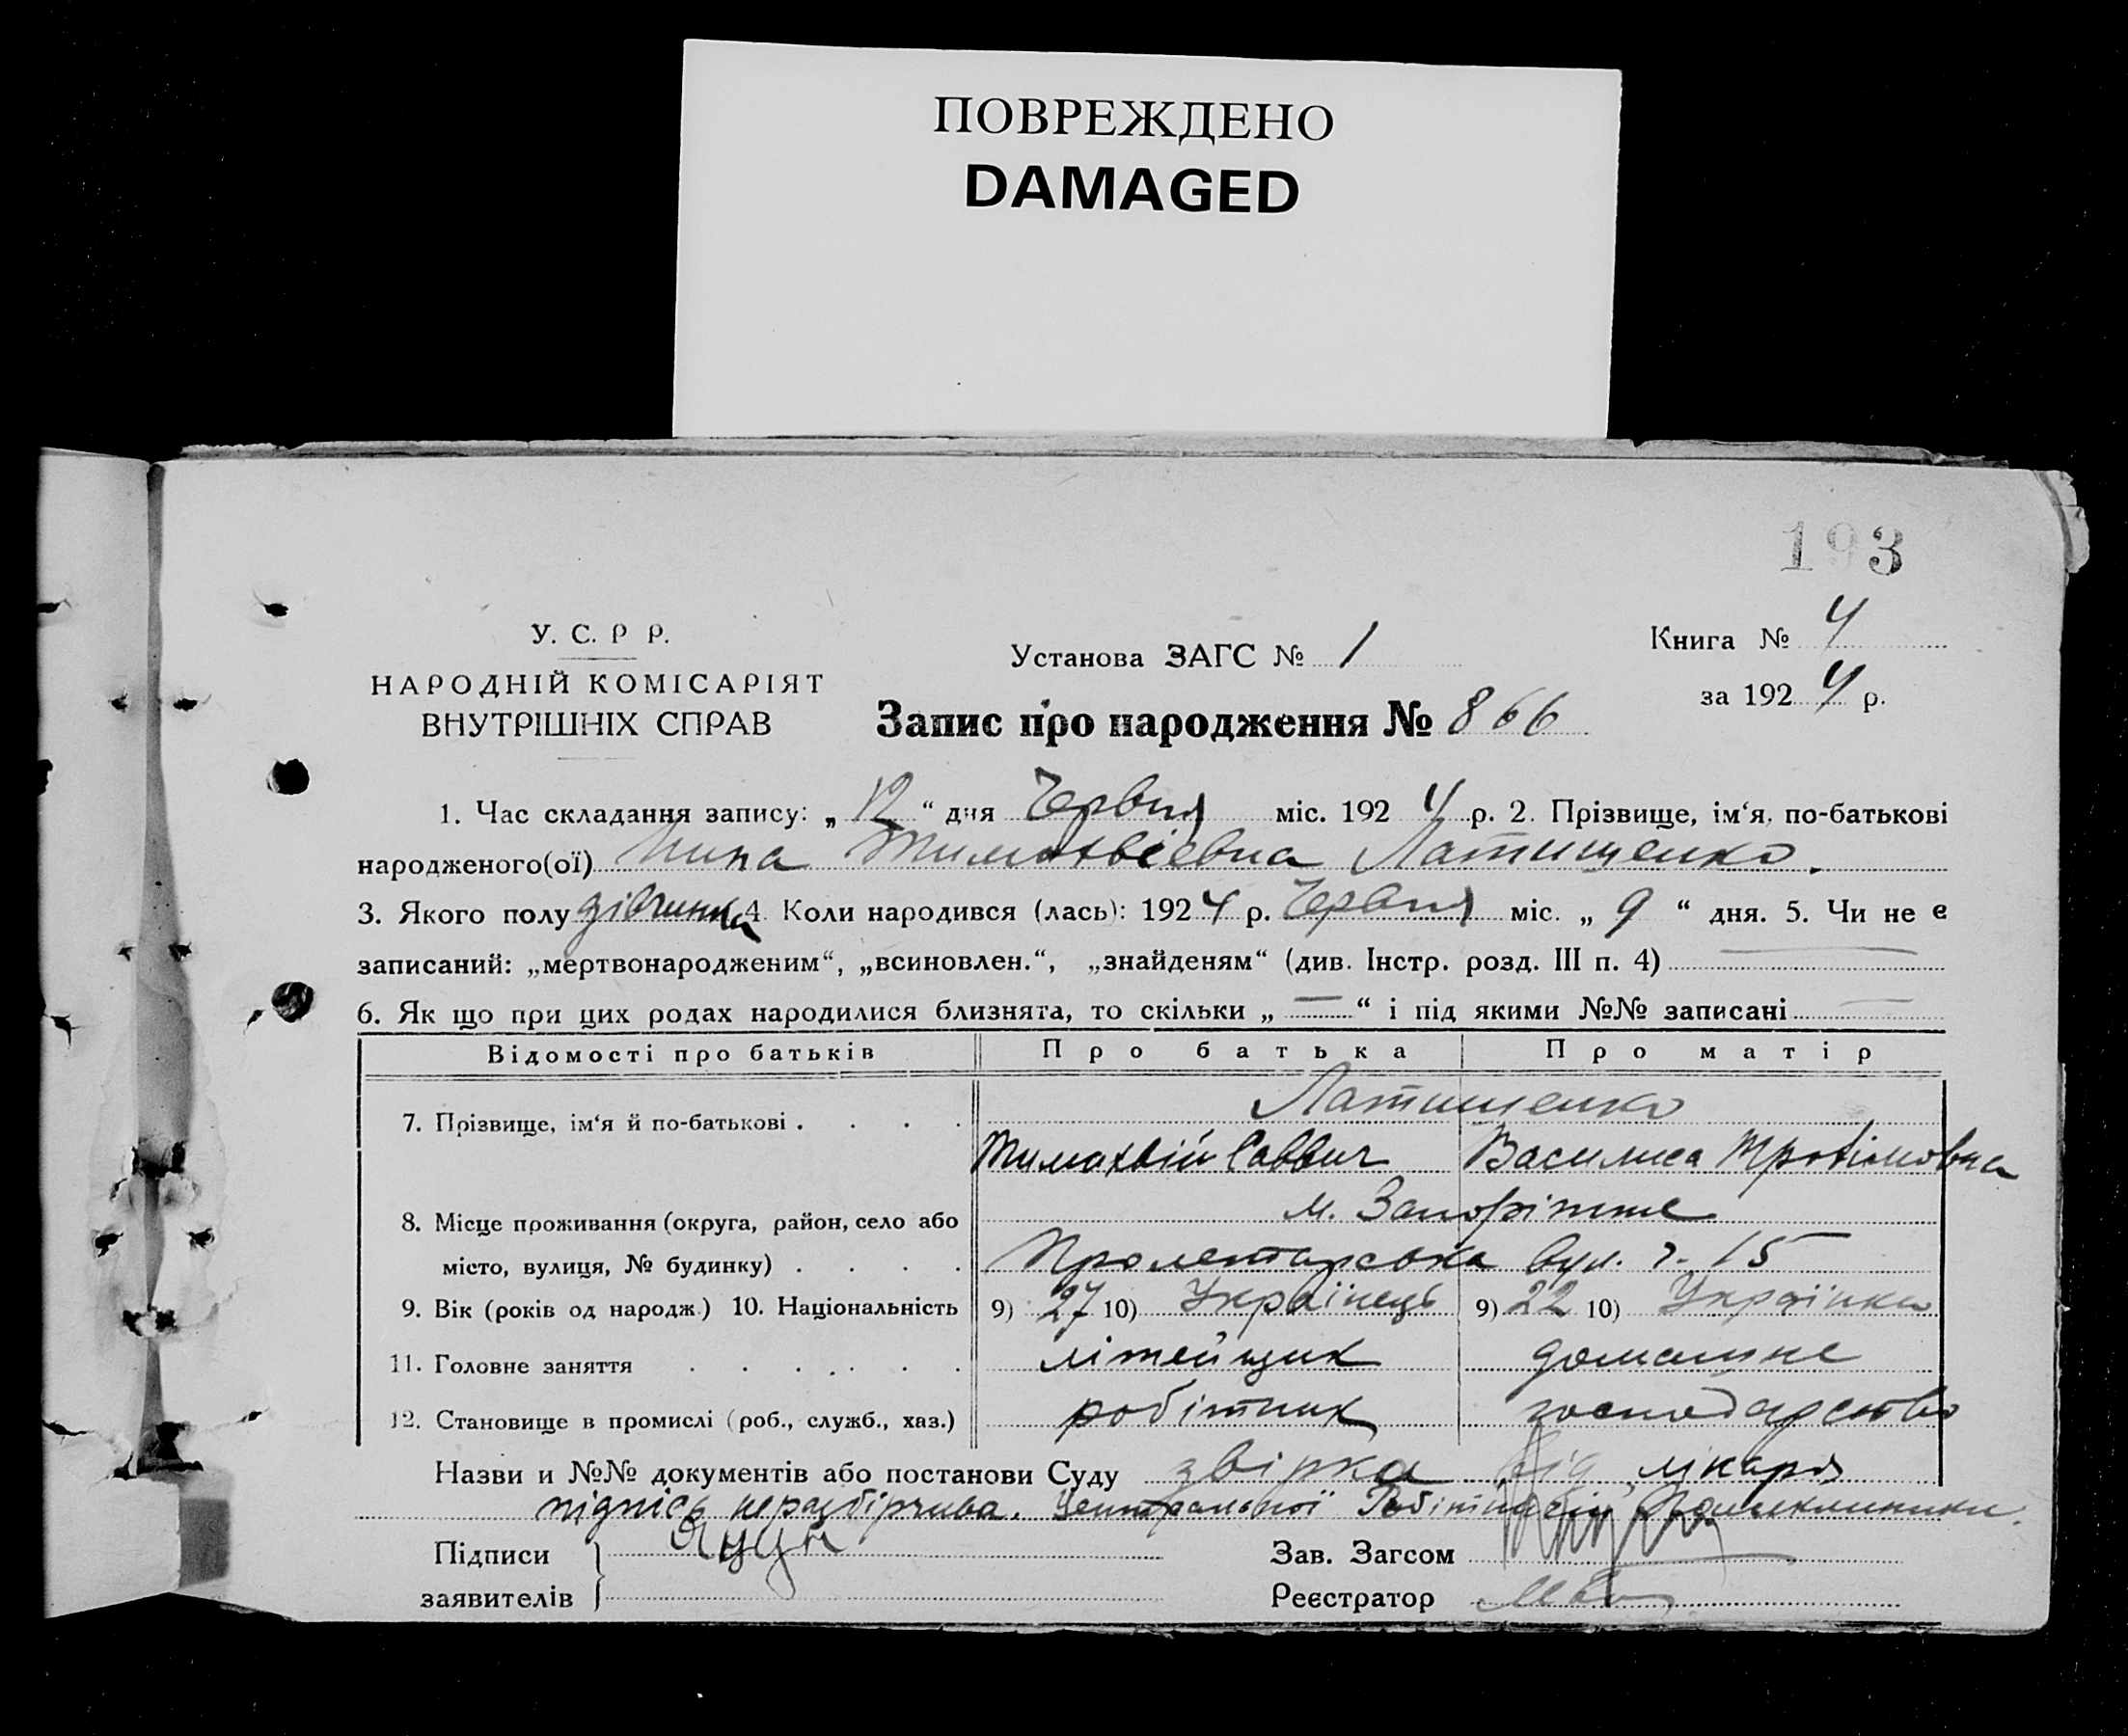 ПОВРЕЖДЕНО
DAMAGED
193
У. С. Р Р.
НАРОДНІЙ КОМІСАРІЯТ
ВНУТРІШНІХ СПРАВ
Установа ЗАГС № 1
Книга № 4
за 1924 р.
Запис про народження № 866
1. Час складання запису: „12“ дня Червня міс. 1924 р. 2. Прізвище, ім‘я, по-батькові
народженого(ої) Нина Тимохвієвна Латишенко.
3. Якого полу дівчинка 4. Коли народився (лась): 1924 р. Червня міс. „9“ дня. 5. Чи не є
записаний: „мертвонародженим“, „всиновлен.“, „знайденям“ (див. Інстр. розд. III п. 4) —
6. Як що при цих родах народилися близнята, то скільки „—“ і під якими №№ записані —
Відомості про батьків Про батька Про матір
7. Прізвище, ім‘я й по-батькові . . . . Латишенко
Тимохвій Саввич Василиса Трохімовна
8. Місце проживання (округа, район, село або м. Запоріжже
місто, вулиця, № будинку) . . . . Пролетарська вул. 15
9. Вік (років од народж.) 10. Національність 9) 27 10) Українець 9) 22 10) Українка
11. Головне заняття . . . . . . літейщик домашне
12. Становище в промислі (роб., служб., хаз.) робітник господарство
Назви и №№ документів або постанови Суду звірка від лікаря
підпись неразбірчива. Центральної Робітничої Поликлиники.
Підписи
заявителів
Зав. Загсом
Реєстратор